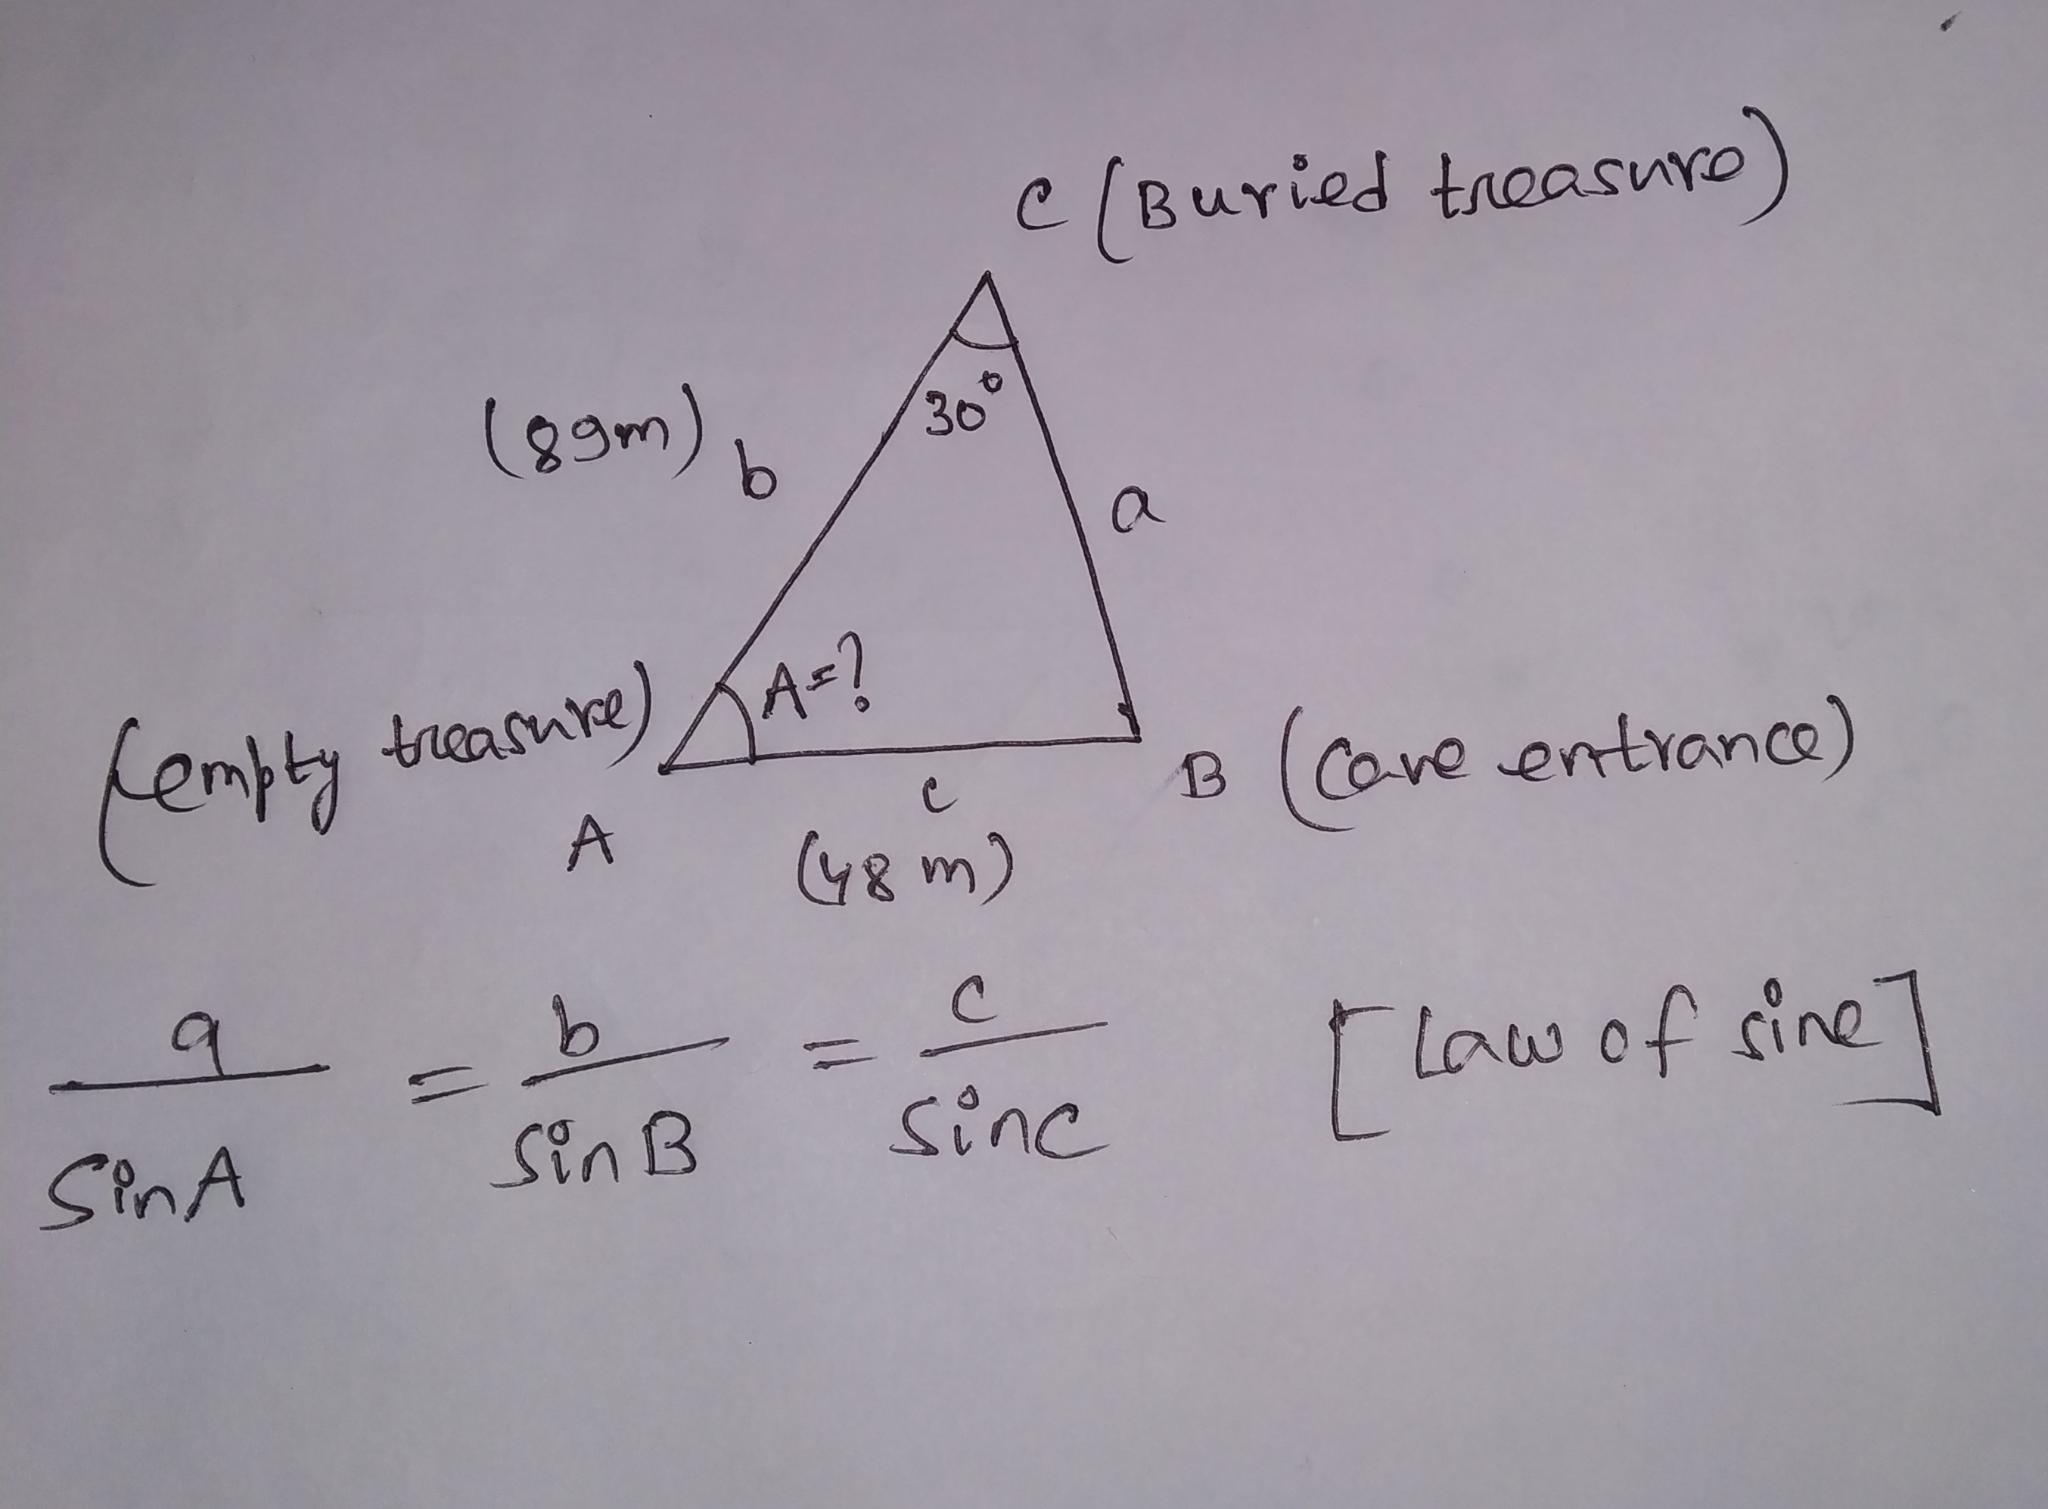 C (Buried treasure)
30°
(89m) b
a
A=?
(empty treasure)
A
c
(48 m)
B (Cave entrance)
a/sinA = b/sinB = c/sinC [Law of sine]